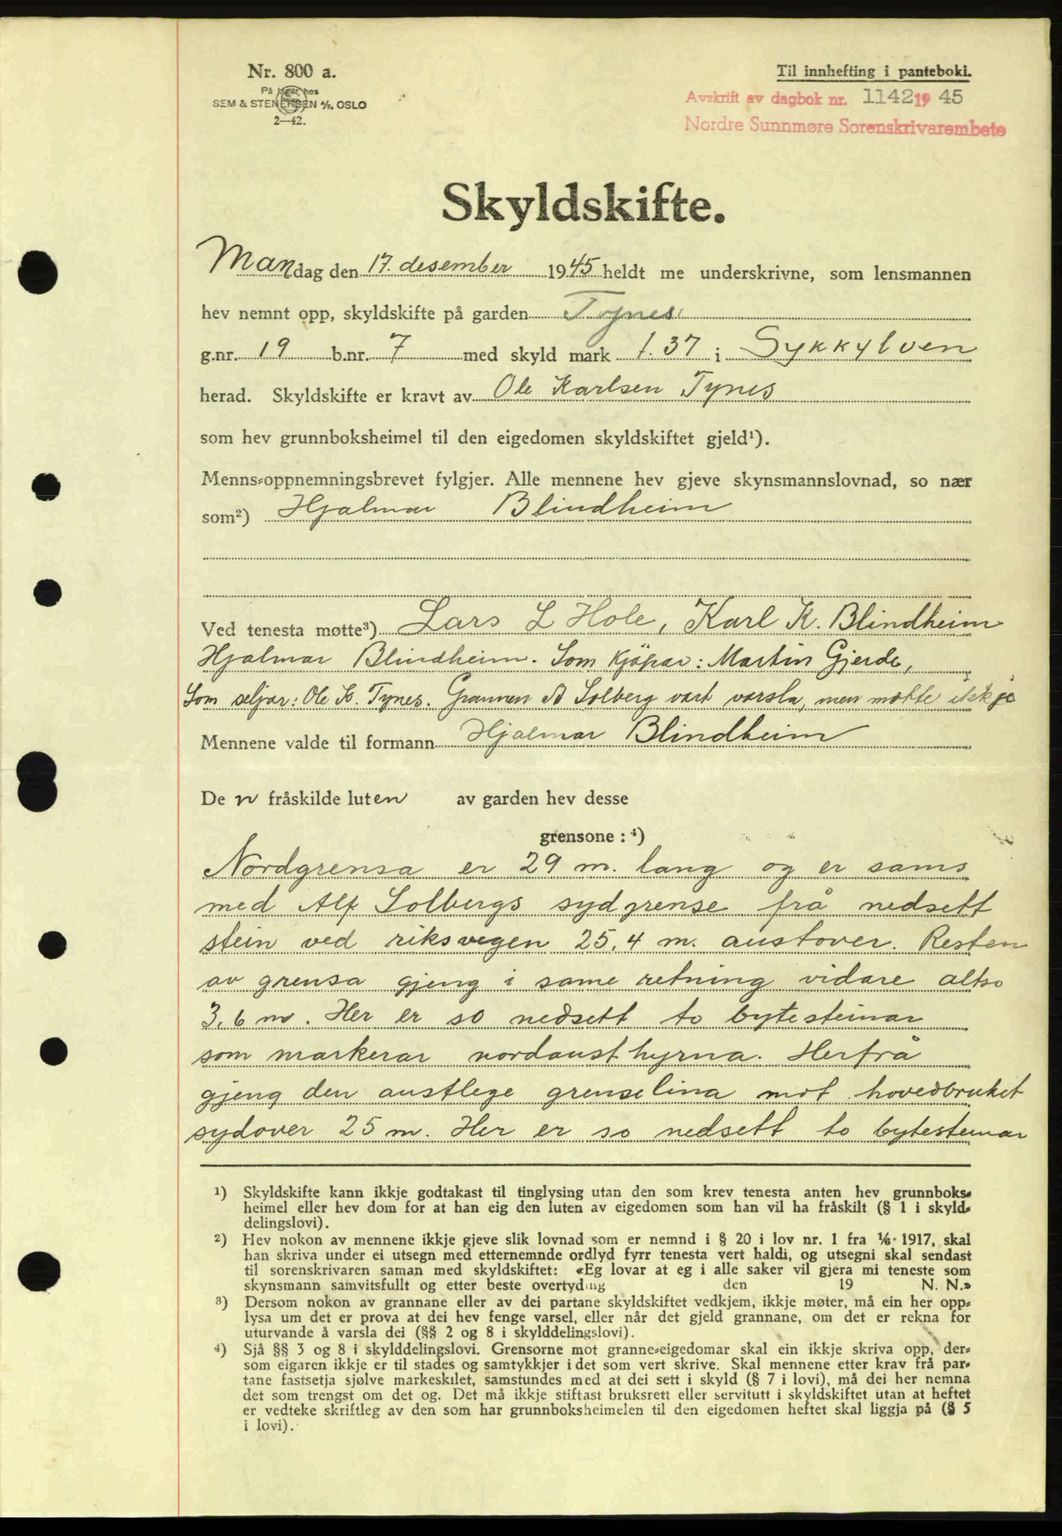 Nr. 800 a.
På lager hos
SEM & STENERSEN A/S, OSLO
2—42.
Til innhefting i panteboki.
Avskrift av dagbok nr. 1142 19 45
Nordre Sunnmøre Sorenskrivarembete
Skyldskifte.
Mandag den 17. desember 1945 heldt me underskrivne, som lensmannen
hev nemnt opp, skyldskifte på garden Tynes
g.nr. 19 b.nr. 7 med skyld mark 1.37 i Sykkylven
herad. Skyldskifte er kravt av Ole Karlsen Tynes
som hev grunnboksheimel til den eigedomen skyldskiftet gjeld¹).
Menns-oppnemningsbrevet fylgjer. Alle mennene hev gjeve skynsmannslovnad, so nær
som²) Hjalmar Blindheim
Ved tenesta møtte³) Lars L Hole, Karl K. Blindheim
Hjalmar Blindheim. Som kjöpar: Martin Gjerde,
Som seljar: Ole K. Tynes. Grannen A Solberg vart varsla, men møtte ikkje
Mennene valde til formann Hjalmar Blindheim
De n fråskilde luten av garden hev desse
grensone: ⁴)
Nordgrensa er 29 m. lang og er sams
med Alf Solbergs sydgrense frå nedsett
stein ved riksvegen 25,4 m. austover. Resten
av grensa gjeng i same retning vidare altso
3,6 m. Her er so nedsett to bytesteinar
som markerar nordausthyrna. Herfrå
gjeng den austlege grenselina mot hovedbruket
sydover 25 m. Her er so nedsett to bytesteinar
¹) Skyldskifte kann ikkje godtakast til tinglysing utan den som krev tenesta anten hev grunnboks-
heimel eller hev dom for at han eig den luten av eigedomen som han vil ha fråskilt (§ 1 i skyld-
delingslovi).
²) Hev nokon av mennene ikkje gjeve slik lovnad som er nemnd i § 20 i lov nr. 1 fra 1/6 1917, skal
han skriva under ei utsegn med etternemnde ordlyd fyrr tenesta vert haldi, og utsegni skal sendast
til sorenskrivaren saman med skyldskiftet: «Eg lovar at eg i alle saker vil gjera mi teneste som
skynsmann samvitsfullt og etter beste overtyding den 19 N. N.»
³) Dersom nokon av grannane eller av dei partane skyldskiftet vedkjem, ikkje møter, må ein her opp-
lysa um det er prova at dei hev fenge varsel, eller når det gjeld grannane, om det er rekna for
uturvande å varsla dei (§§ 2 og 8 i skylddelingslovi).
⁴) Sjå §§ 3 og 8 i skylddelingslovi. Grensorne mot granne-eigedomar skal ein ikkje skriva opp, der-
som eigaren ikkje er til stades og samtykkjer i det som vert skrive. Skal mennene etter krav frå par-
tane fastsetja sjølve markeskilet, samstundes med at dei sett i skyld (§ 7 i lovi), må dei her nemna
det som trengst om det og. Det må ikkje stiftast bruksrett eller servitutt i skyldskiftet utan at heftet
er vedteke skriftleg av den som har grunnboksheimelen til den eigedomen heftet skal liggja på (§ 5
i lovi).